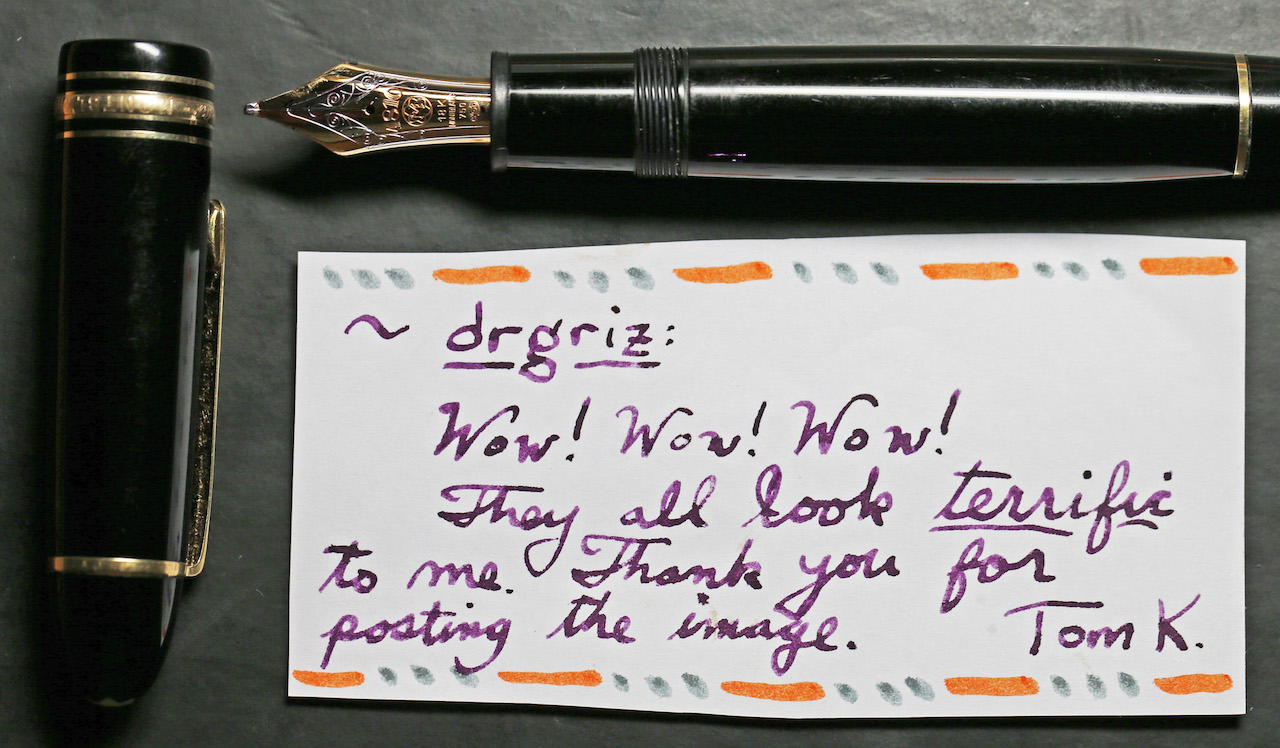 ~ drgriz:
Wow! Wow! Wow!
They all look terrific
to me. Thank you for
posting the image. Tom K.
18K
750